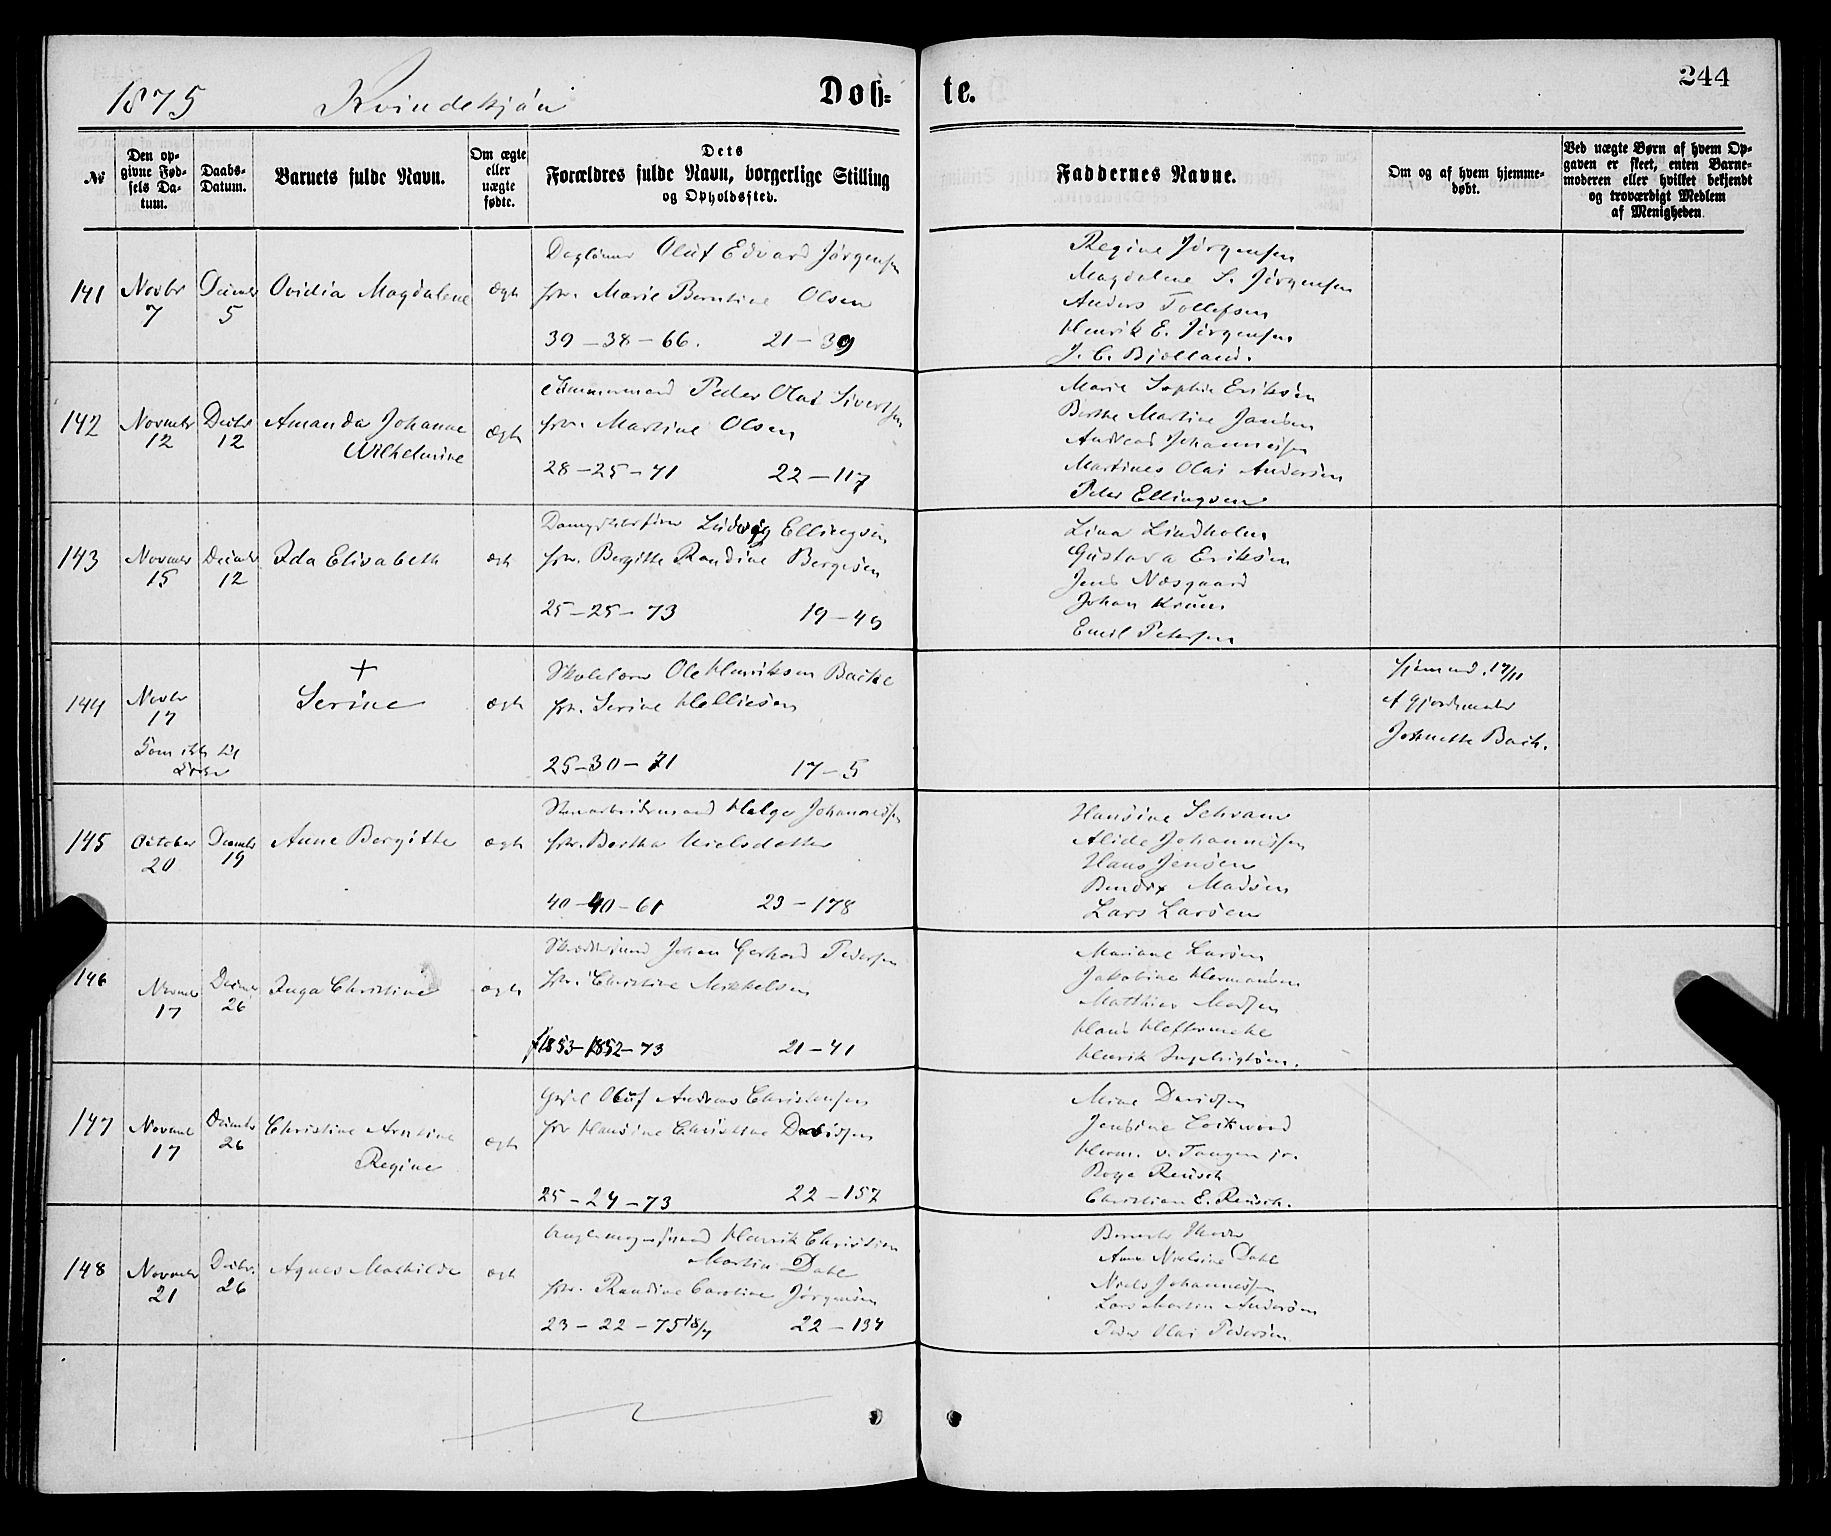 1875 Kvindekjøn Døb- te. 244
№
Den op-
givne Fød-
sels Da-
tum.
Daabs-
Datum.
Barnets fulde Navn.
Om ægte
eller
uægte
fødte.
Dets
Forældres fulde Navn, borgerlige Stilling
og Opholdssted.
Faddernes Navne.
Om og af hvem hjemme-
døbt.
Ved uægte Børn af hvem Op-
gaven er skeet, enten Barne-
moderen eller hvilket bekjendt
og troværdigt Medlem
af Menigheden.
141 Novbr 7
5
Ovidia Magdalene
ægte
Oluf Edvard Jørgensen
Marie Berntine Olsen
39 - 38 - 66. 21 - 39
Regine Jørgensen
Magdalene S. Jørgensen
Anders Tollefsen
Henrik E. Jørgensen
J. C. Bjelland.
142 Novmbr 12
Decbr 12
Amanda Johanne
Wilhelmine
ægte
Tømmermand Peder Olai Sivertsen
Martine Olsen
28 - 25 - 71 22 - 117
Marie Sophie Eriksen
Berthe Martine Jansen
Andreas Johannesen
Martines Olai Andersen
Peder Ellingsen
143 Novmbr 15
Decmbr 12
Ida Elisabeth
ægte
Ludvig Ellingsen
Bergitte Randine Bergesen
25 - 25 - 73 19 - 49
Lina Lindholm
Gustava Eriksen
Jens Næsgaard
Johan
Emil Petersen
144 Novbr 17
Kom ikke til
Kirke
+
Serine
ægte
Skolelærer Ole Henriksen Bakke
Serine Helliesen
25 - 30 - 71 17 - 5
17/11
af Gjordemoder
Back.
145 October 20
Decmbr 19
Anne Bergitte
ægte
Helge Johannessen
Berthe Nielsdatter
40 - 40 - 61 23 - 178
Hansine
Alide Johannessen
Hans Jensen
Bendix Madsen
Lars Larsen
146 Novmbr 17
Decmbr 26
Inga Christine
ægte
Johan Gerhard Pedersen
Christine Mikkelsen
1853 - 1852 - 73 21 - 41
Mariane Larsen
Jakobine Hermansen
Matthias Madsen
Hans
Henrik Ingebrigtsen.
147 Novmbr 17
Decmbr 26
Christine Arntine
Regine
ægte
Oluf Andreas Christensen
Hansine Christine Davidsen
25 - 24 - 73 22 - 157
Mine Davidsen
Jensine Lockwood
Herm. v. Tangen jr.
Reusch
Christian E. Reusch.
148 Novmbr 21
Decbr. 26
Agnes Mathilde
ægte
Henrik Christian
Martin Dahl
Randine Caroline Jørgensen
23 - 22 - 75 18/7 22 - 134
Dahl
Niels Johannessen
Lars Morten Andersen
Peder Olai Pedersen